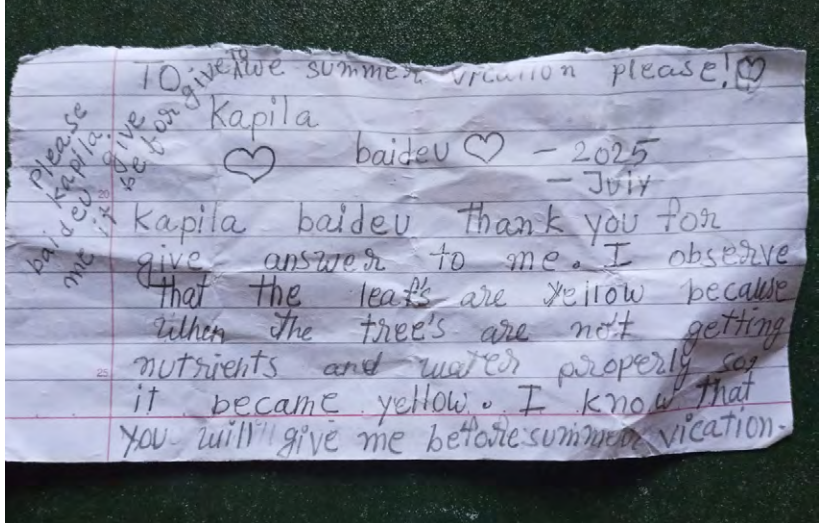 TO give me before summer vication please!
Kapila
baideu - 2025
- Juiy
please
kapila
baideu give
me it before
Kapila baideu thank you for
give answer to me. I observe
that the leaf's are yellow because
when the tree's are not getting
nutrients and water properly so,
it became yellow. I know that
you will give me before summer vication.